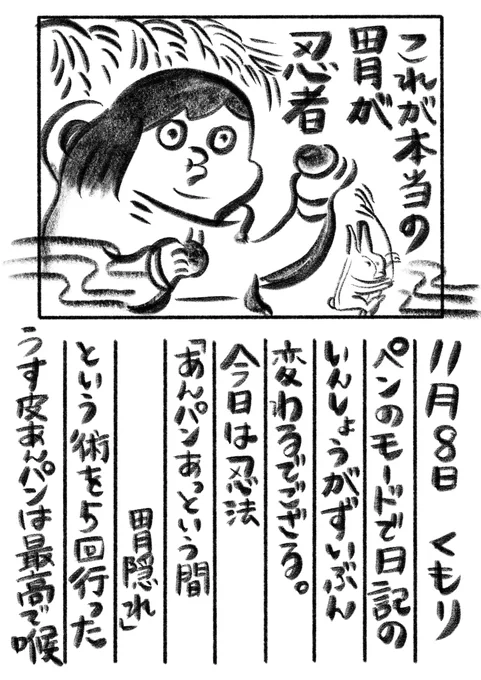 これが本当の
胃が
忍者
11月8日 くもり
ペンのモードで日記の
いんしょうがずいぶん
変わるでござる。
今日は忍法
「あんパンあっという間
胃隠れ」
という術を5回行った
うす皮あんパンは最高で喉